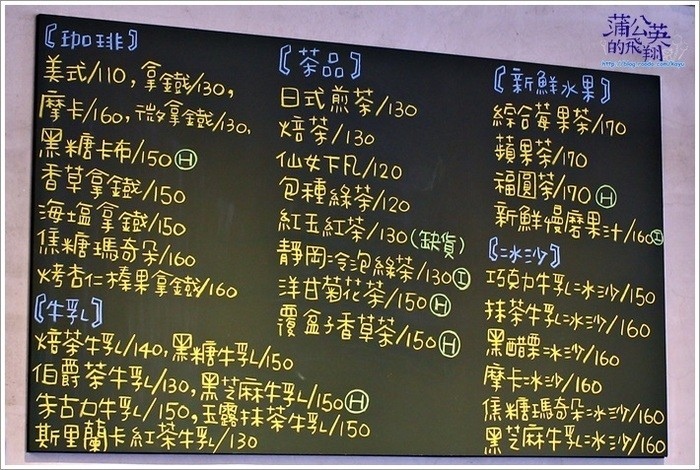 蒲公英
的飛翔
〖珈琲〗
美式/110, 拿鐵/130,
摩卡/160, 微拿鐵/130,
黑糖卡布/150 Ⓗ
香草拿鐵/150
海塩拿鐵/150
焦糖瑪奇朵/160
烤杏仁榛果拿鐵/160
〖牛乳〗
焙茶牛乳/140, 黑糖牛乳/150
伯爵茶牛乳/130, 黑芝麻牛乳/150 Ⓗ
朱古力牛乳/150, 玉露抹茶牛乳/150
斯里蘭卡紅茶牛乳/130
〖茶品〗
日式煎茶/130
焙茶/130
仙女下凡/120
包種綠茶/120
紅玉紅茶/130(缺貨)
靜岡冷泡綠茶/130 Ⓘ
洋甘菊花茶/150 Ⓗ
覆盆子香草茶/150 Ⓗ
〖新鮮水果〗
綜合莓果茶/170
蘋果茶/170
福圓茶/170 Ⓗ
新鮮慢磨果汁/160 Ⓘ
〖冰沙〗
巧克力牛乳冰沙/150
抹茶牛乳冰沙/160
黑醋栗冰沙/160
摩卡冰沙/160
焦糖瑪奇朵冰沙/160
黑芝麻牛乳冰沙/160